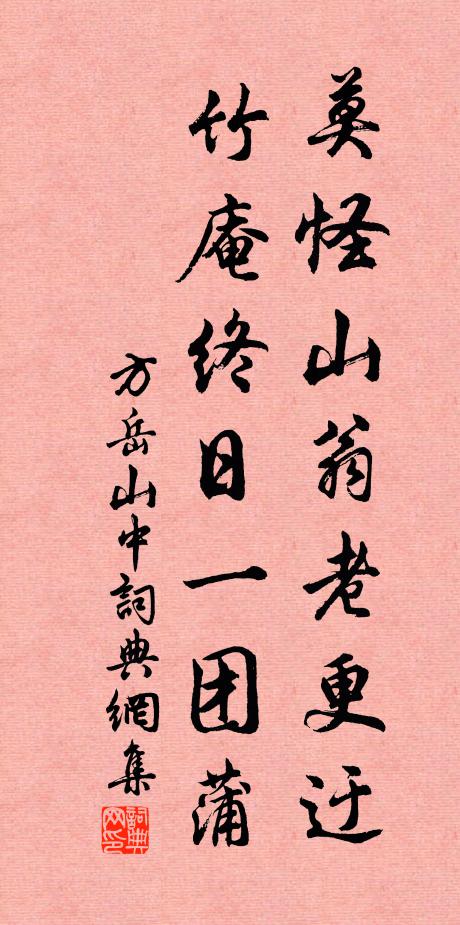 莫怪山翁老更迂
竹庵终日一团蒲
方岳山中詞典網集
詞典网印